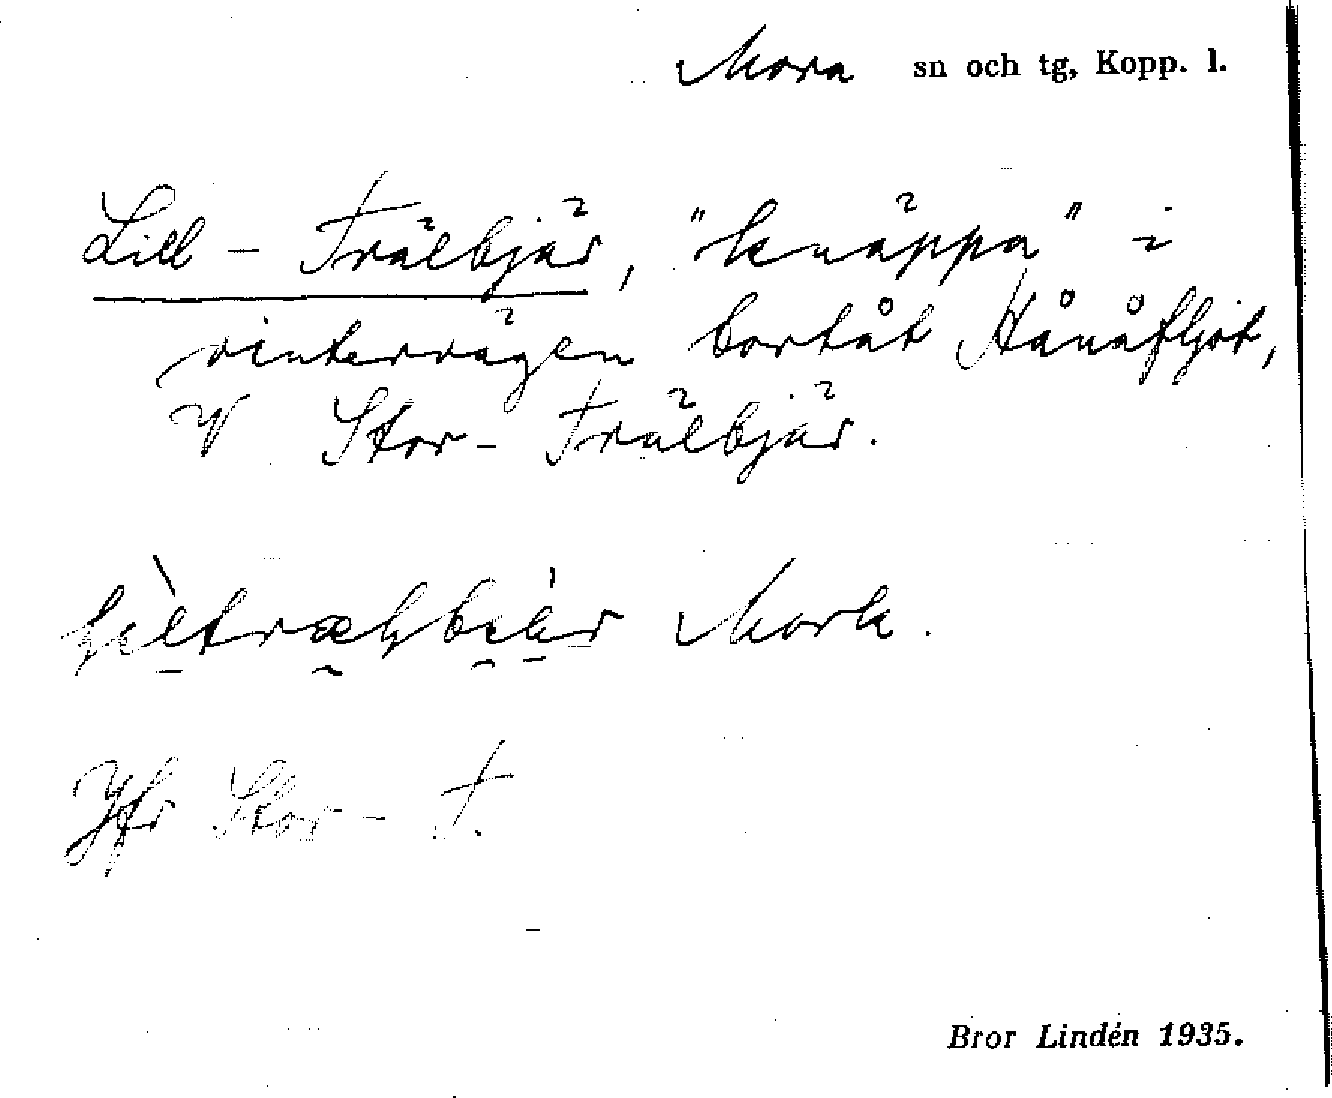 Mora sn och tg, Kopp. l.
Lill-Trälbjär, "knäppa" i
vintervägen bortåt Hånåfljot,
V Stor-Trälbjär.
Mork.
Jfr Stor-T.
Bror Lindén 1935.